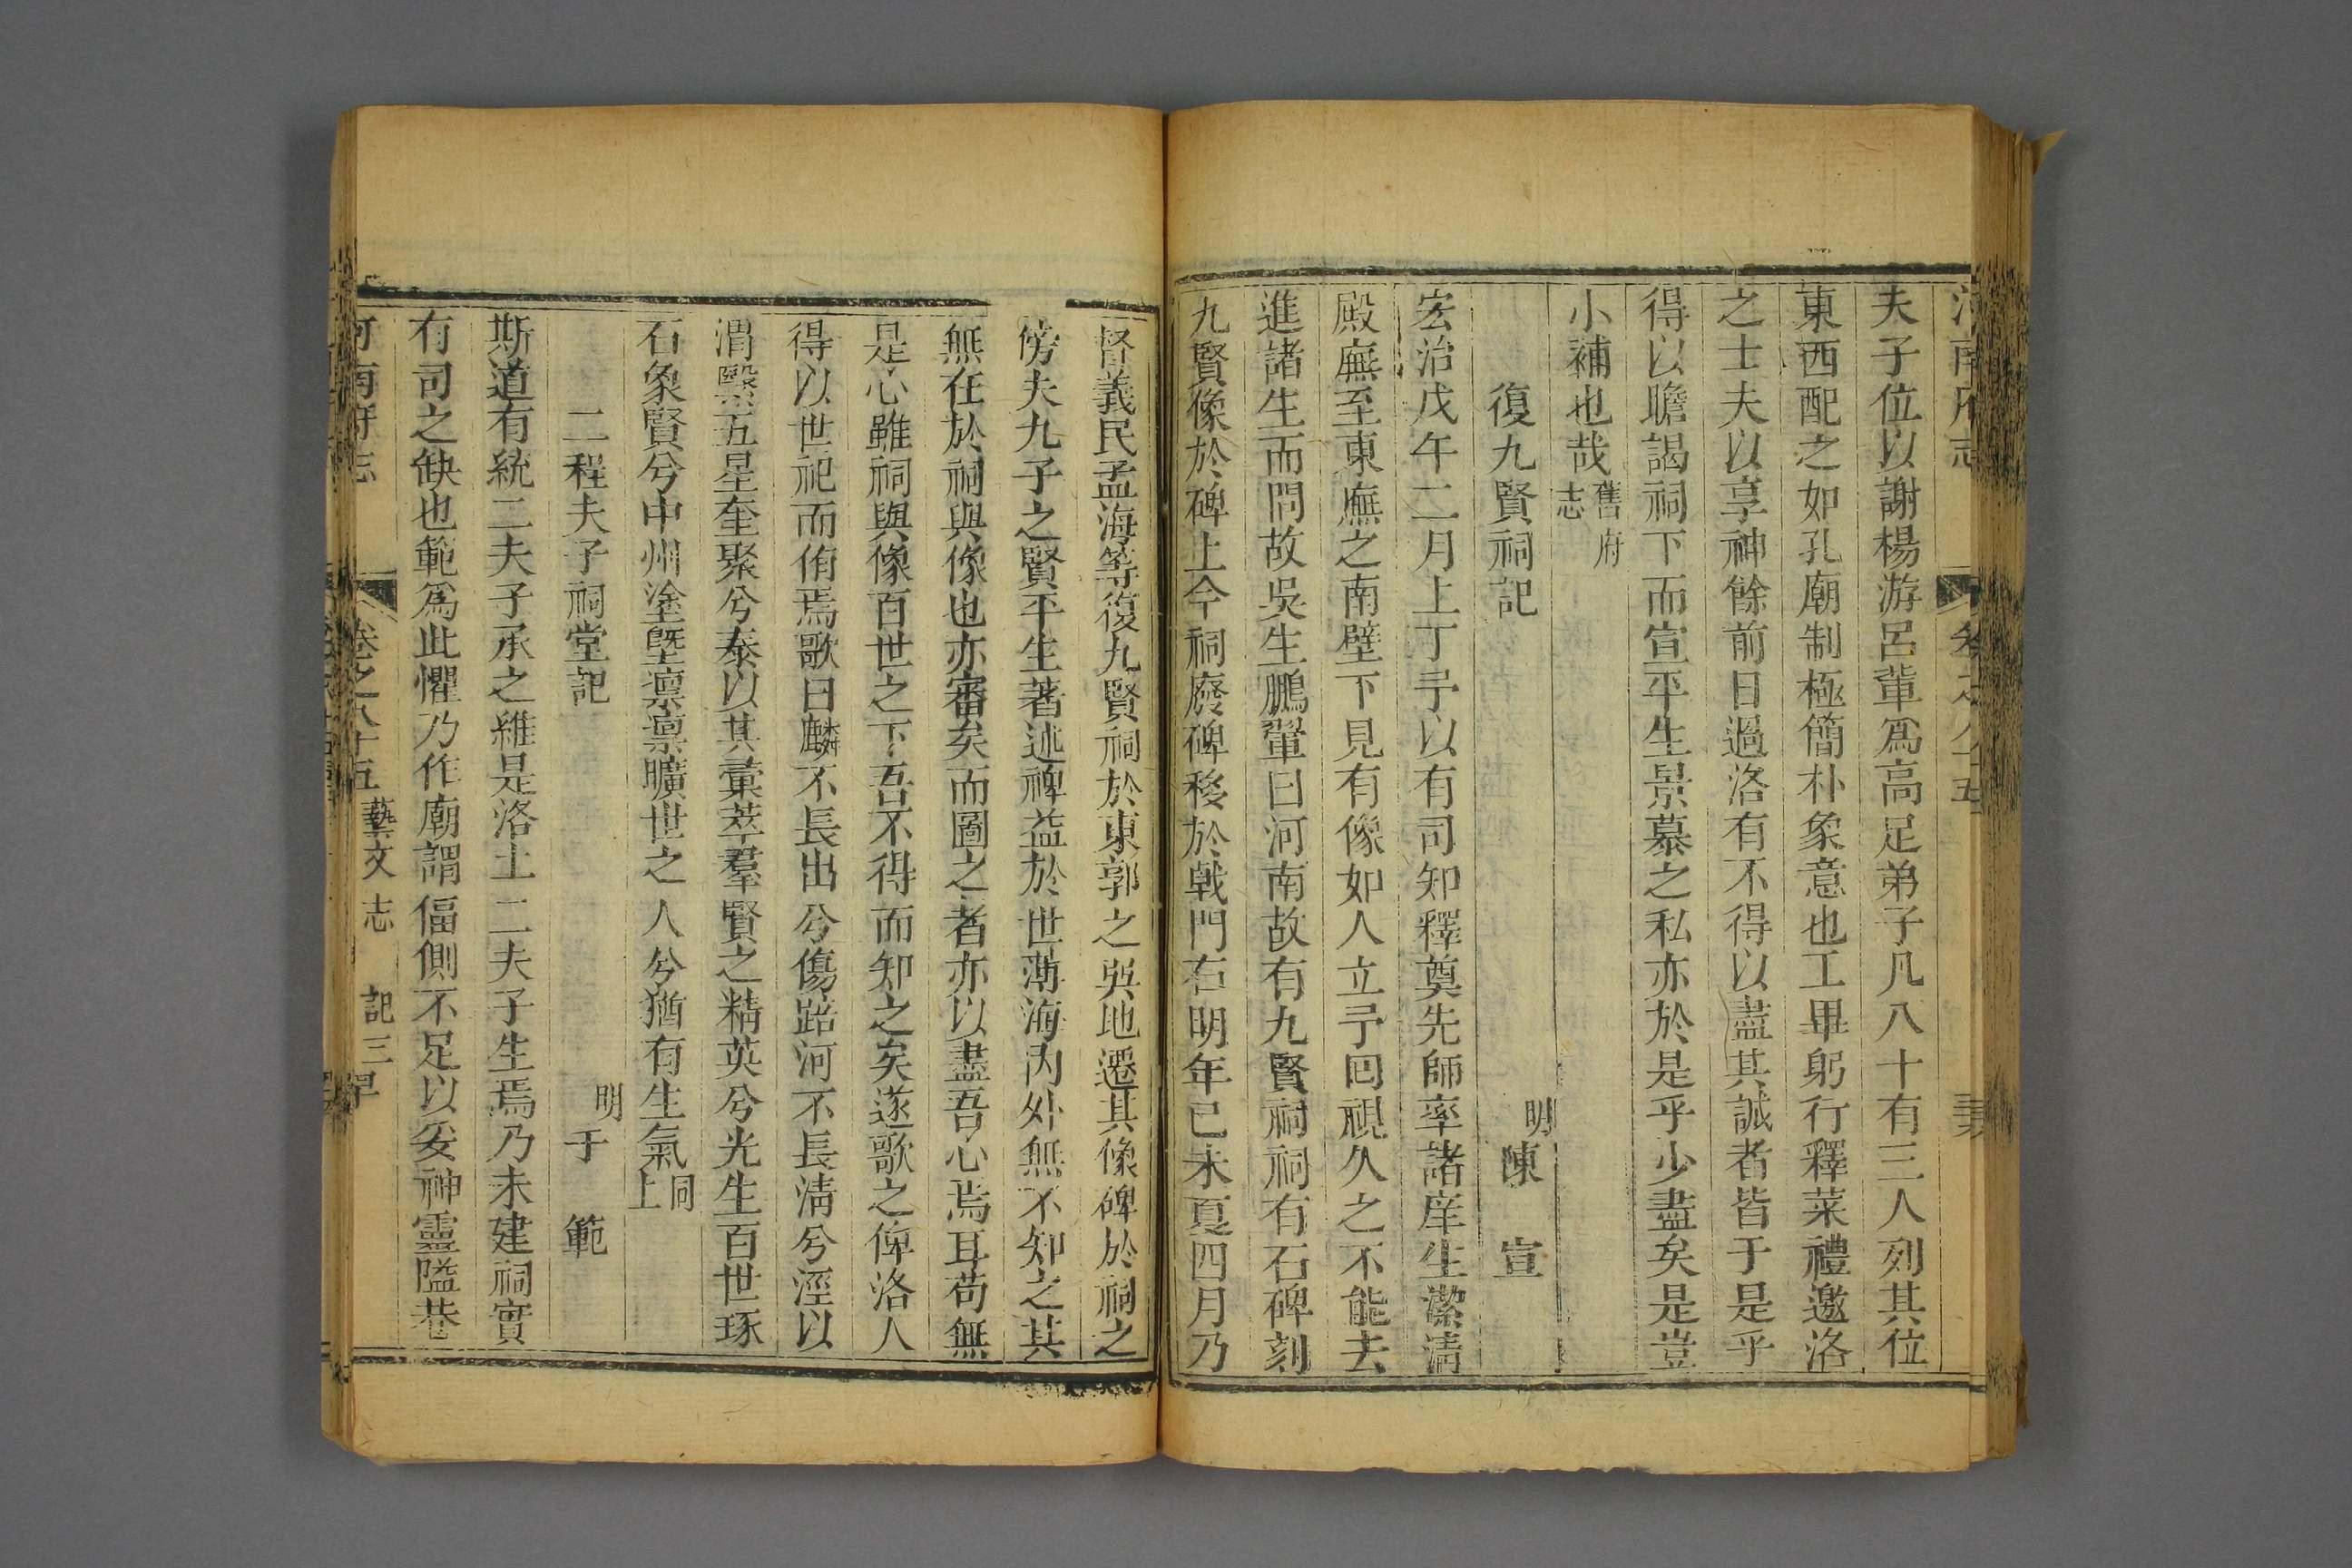 夫子位以謝楊游呂輩爲高足弟子凡八十有三人列其位
東西配之如孔廟制極簡朴象意也工畢躬行釋菜禮邀洛
之士夫以享神餘前日過洛有不得以盡其誠者皆于是乎
得以瞻謁祠下而宣平生景慕之私亦於是乎少盡矣是豈
小補也哉舊府志
復九賢祠記 明陳 宣
宏治戊午二月上丁予以有司知釋奠先師率諸庠生潔清
殿廡至東廡之南壁下見有像如人立予囘視久之不能去
進諸生而問故吳生鵬翬曰河南故有九賢祠祠有石碑刻
九賢像於碑上今祠廢碑移於戟門右明年己未夏四月乃
督義民孟海等復九賢祠於東郭之吳地遷其像碑於祠之
傍夫九子之賢平生著述裨益於世薄海內外無不知之其
無在於祠與像也亦審矣而圖之者亦以盡吾心焉耳苟無
是心雖祠與像百世之下吾不得而知之矣遂歌之俾洛人
得以世祀而侑焉歌曰麟不長出兮傷踣河不長清兮涇以
渭翳五星奎聚兮泰以其彙萃羣賢之精英兮光生百世琢
石象賢兮中州塗墍凛凛曠世之人兮猶有生氣同上
二程夫子祠堂記 明于 範
斯道有統二夫子承之維是洛土二夫子生焉乃未建祠實
有司之缺也範爲此懼乃作廟謂偪側不足以妥神靈隘巷
河南府志 卷之八十五 藝文志 記三